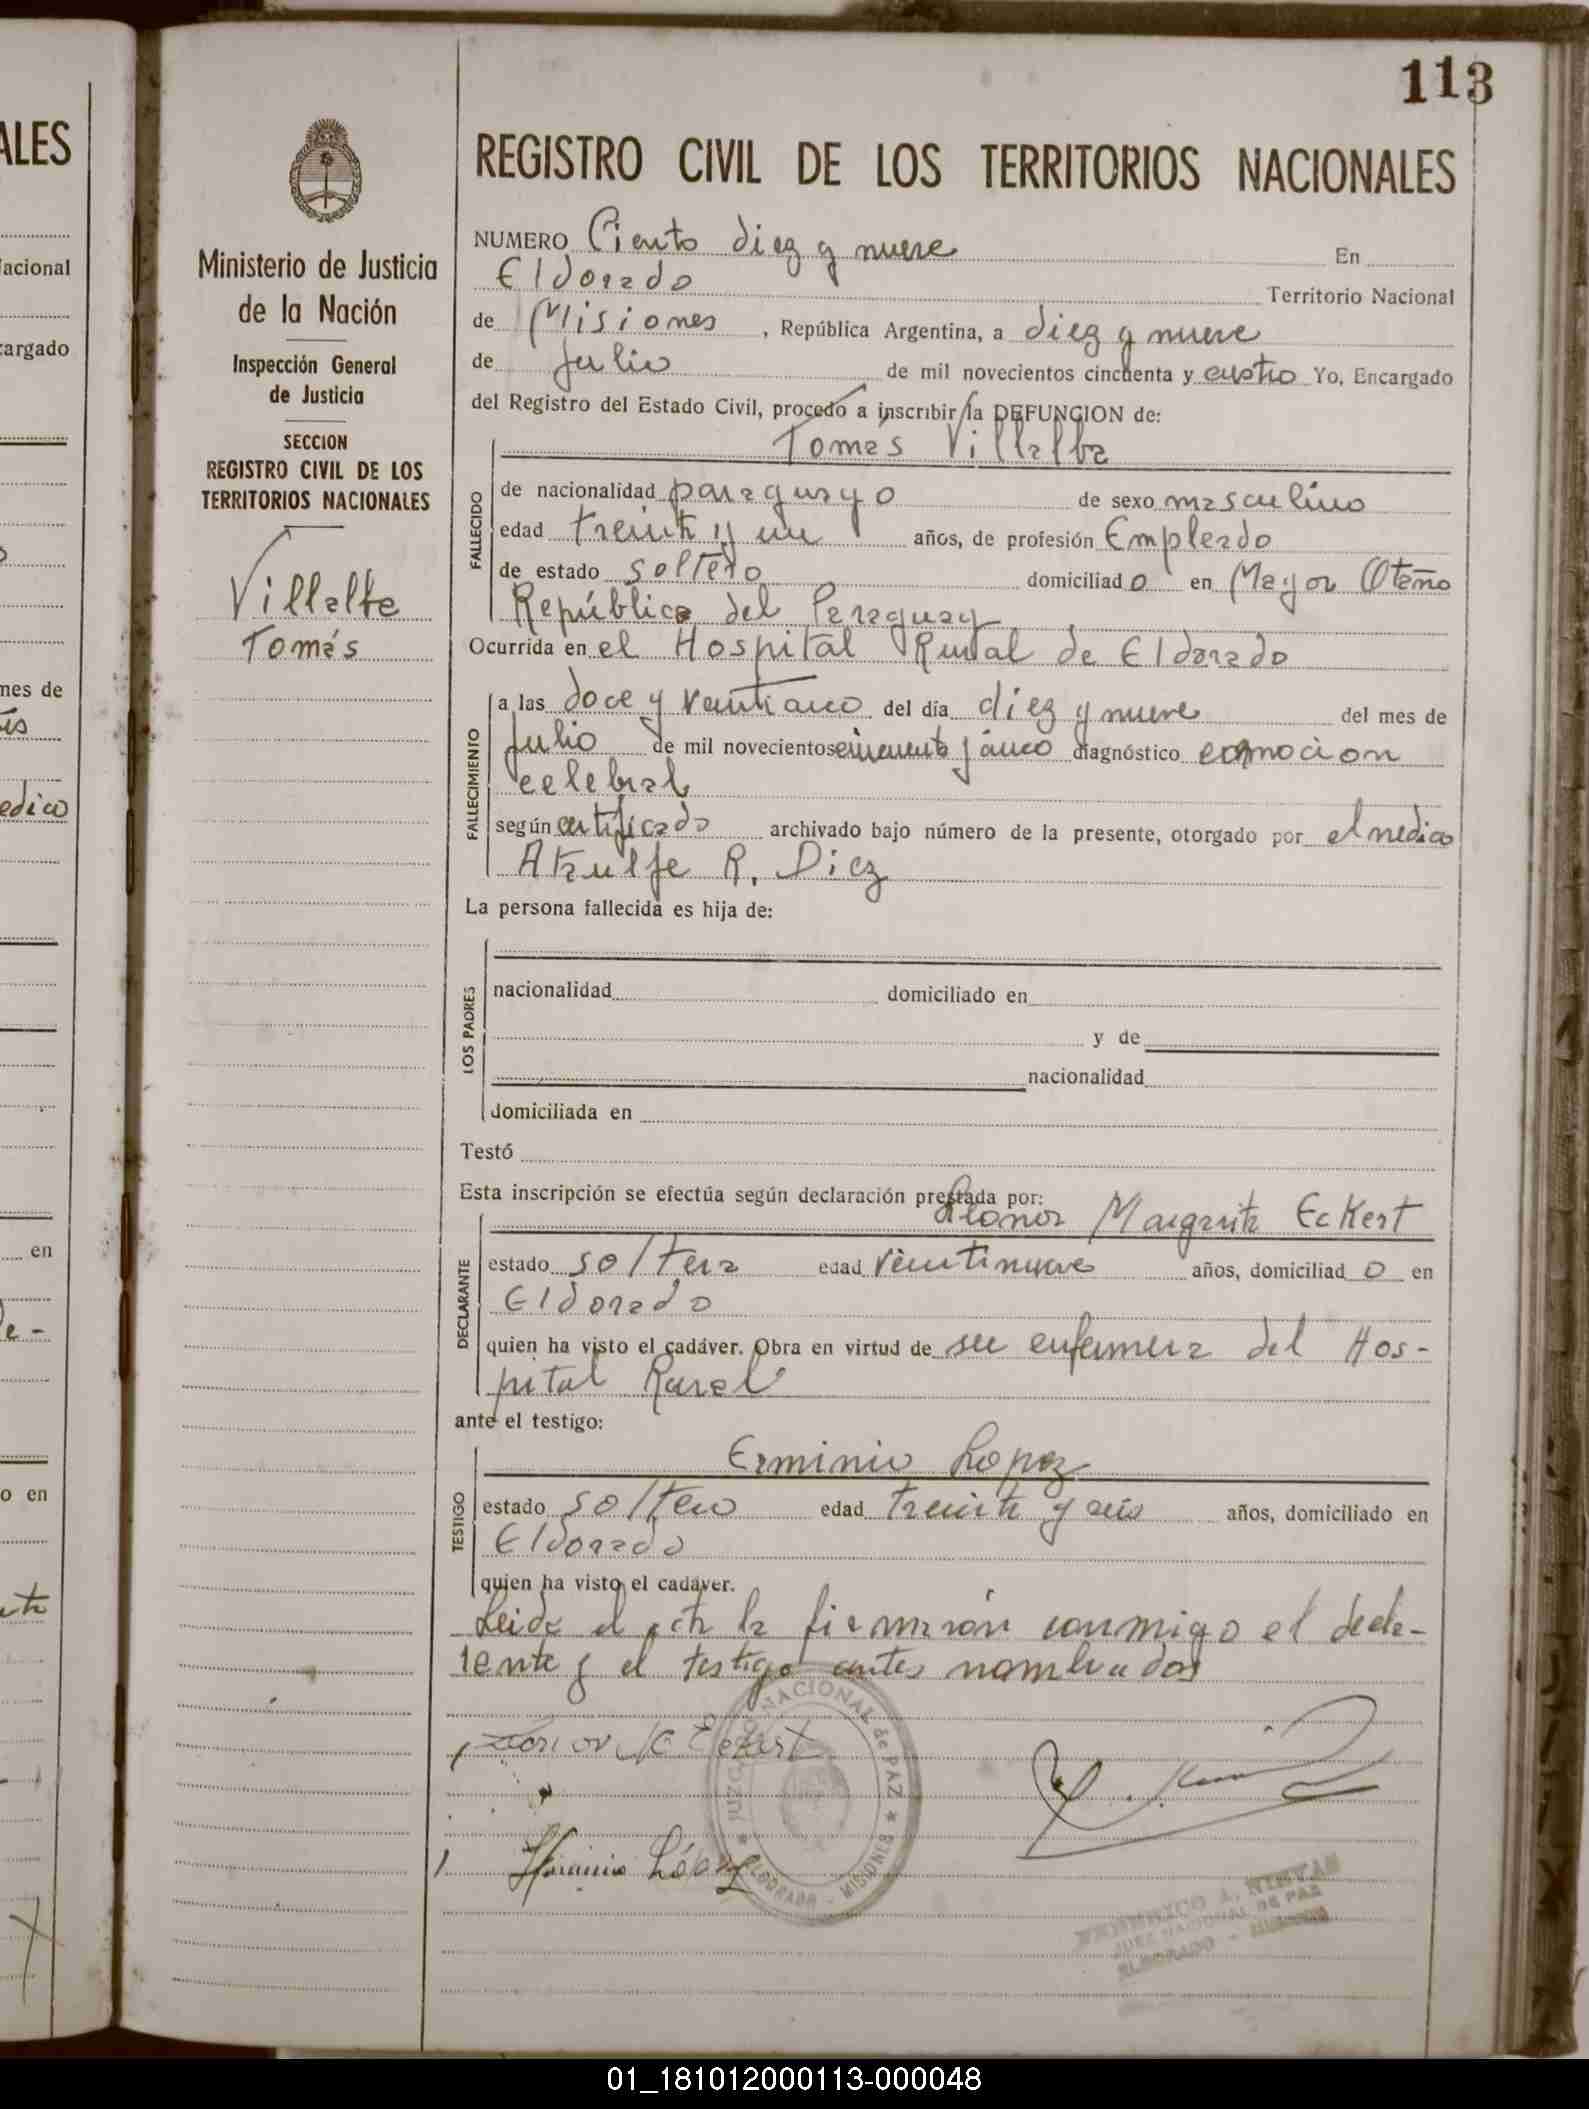 113
ALES
REGISTRO CIVIL DE LOS TERRITORIOS NACIONALES
Ministerio de Justicia
de la Nación
Inspección General
de Justicia
SECCION
REGISTRO CIVIL DE LOS
TERRITORIOS NACIONALES
Villalba
Tomás
NUMERO Ciento diez y nueve En
Eldorado Territorio Nacional
de Misiones, República Argentina, a diez y nueve
de Julio de mil novecientos cincuenta y cuatro Yo, Encargado
del Registro del Estado Civil, procedo a inscribir la DEFUNCION de:
Tomás Villalba
FALLECIDO
de nacionalidad paraguayo de sexo masculino
edad treinta y un años, de profesión Empleado
de estado soltero domiciliado en Mayor Otaño
República del Paraguay
Ocurrida en el Hospital Rural de Eldorado
FALLECIMIENTO
a las doce y veinticinco del día diez y nueve del mes de
Julio de mil novecientos cincuenta y cinco diagnóstico conmocion
celebral
según certificado archivado bajo número de la presente, otorgado por el medico
R. Diez
La persona fallecida es hija de:
LOS PADRES
nacionalidad domiciliado en
y de
nacionalidad
domiciliada en
Testó
Esta inscripción se efectúa según declaración prestada por:
Leonor Margarita Eckert
DECLARANTE
estado soltera edad veintinueve años, domiciliado en
Eldorado
quien ha visto el cadáver. Obra en virtud de ser enfermera del Hos-
pital Rural
ante el testigo:
Erminio Lopez
TESTIGO
estado soltero edad treinta y seis años, domiciliado en
Eldorado
quien ha visto el cadáver.
Leida el acta la firmaron conmigo el decla-
rante y el testigo antes nombrados
Leonor M. Eckert
Herminio López
JUZGADO NACIONAL de PAZ
ELDORADO - MISIONES
JUEZ NACIONAL DE PAZ
ELDORADO - MISIONES
01_181012000113-000048